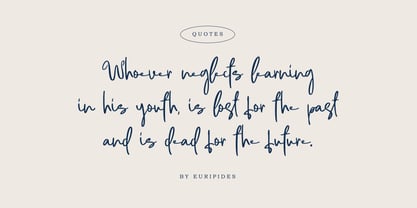 QUOTES
Whoever neglects learning
in his youth, is lost for the past
and is dead for the future.
BY EURIPIDES